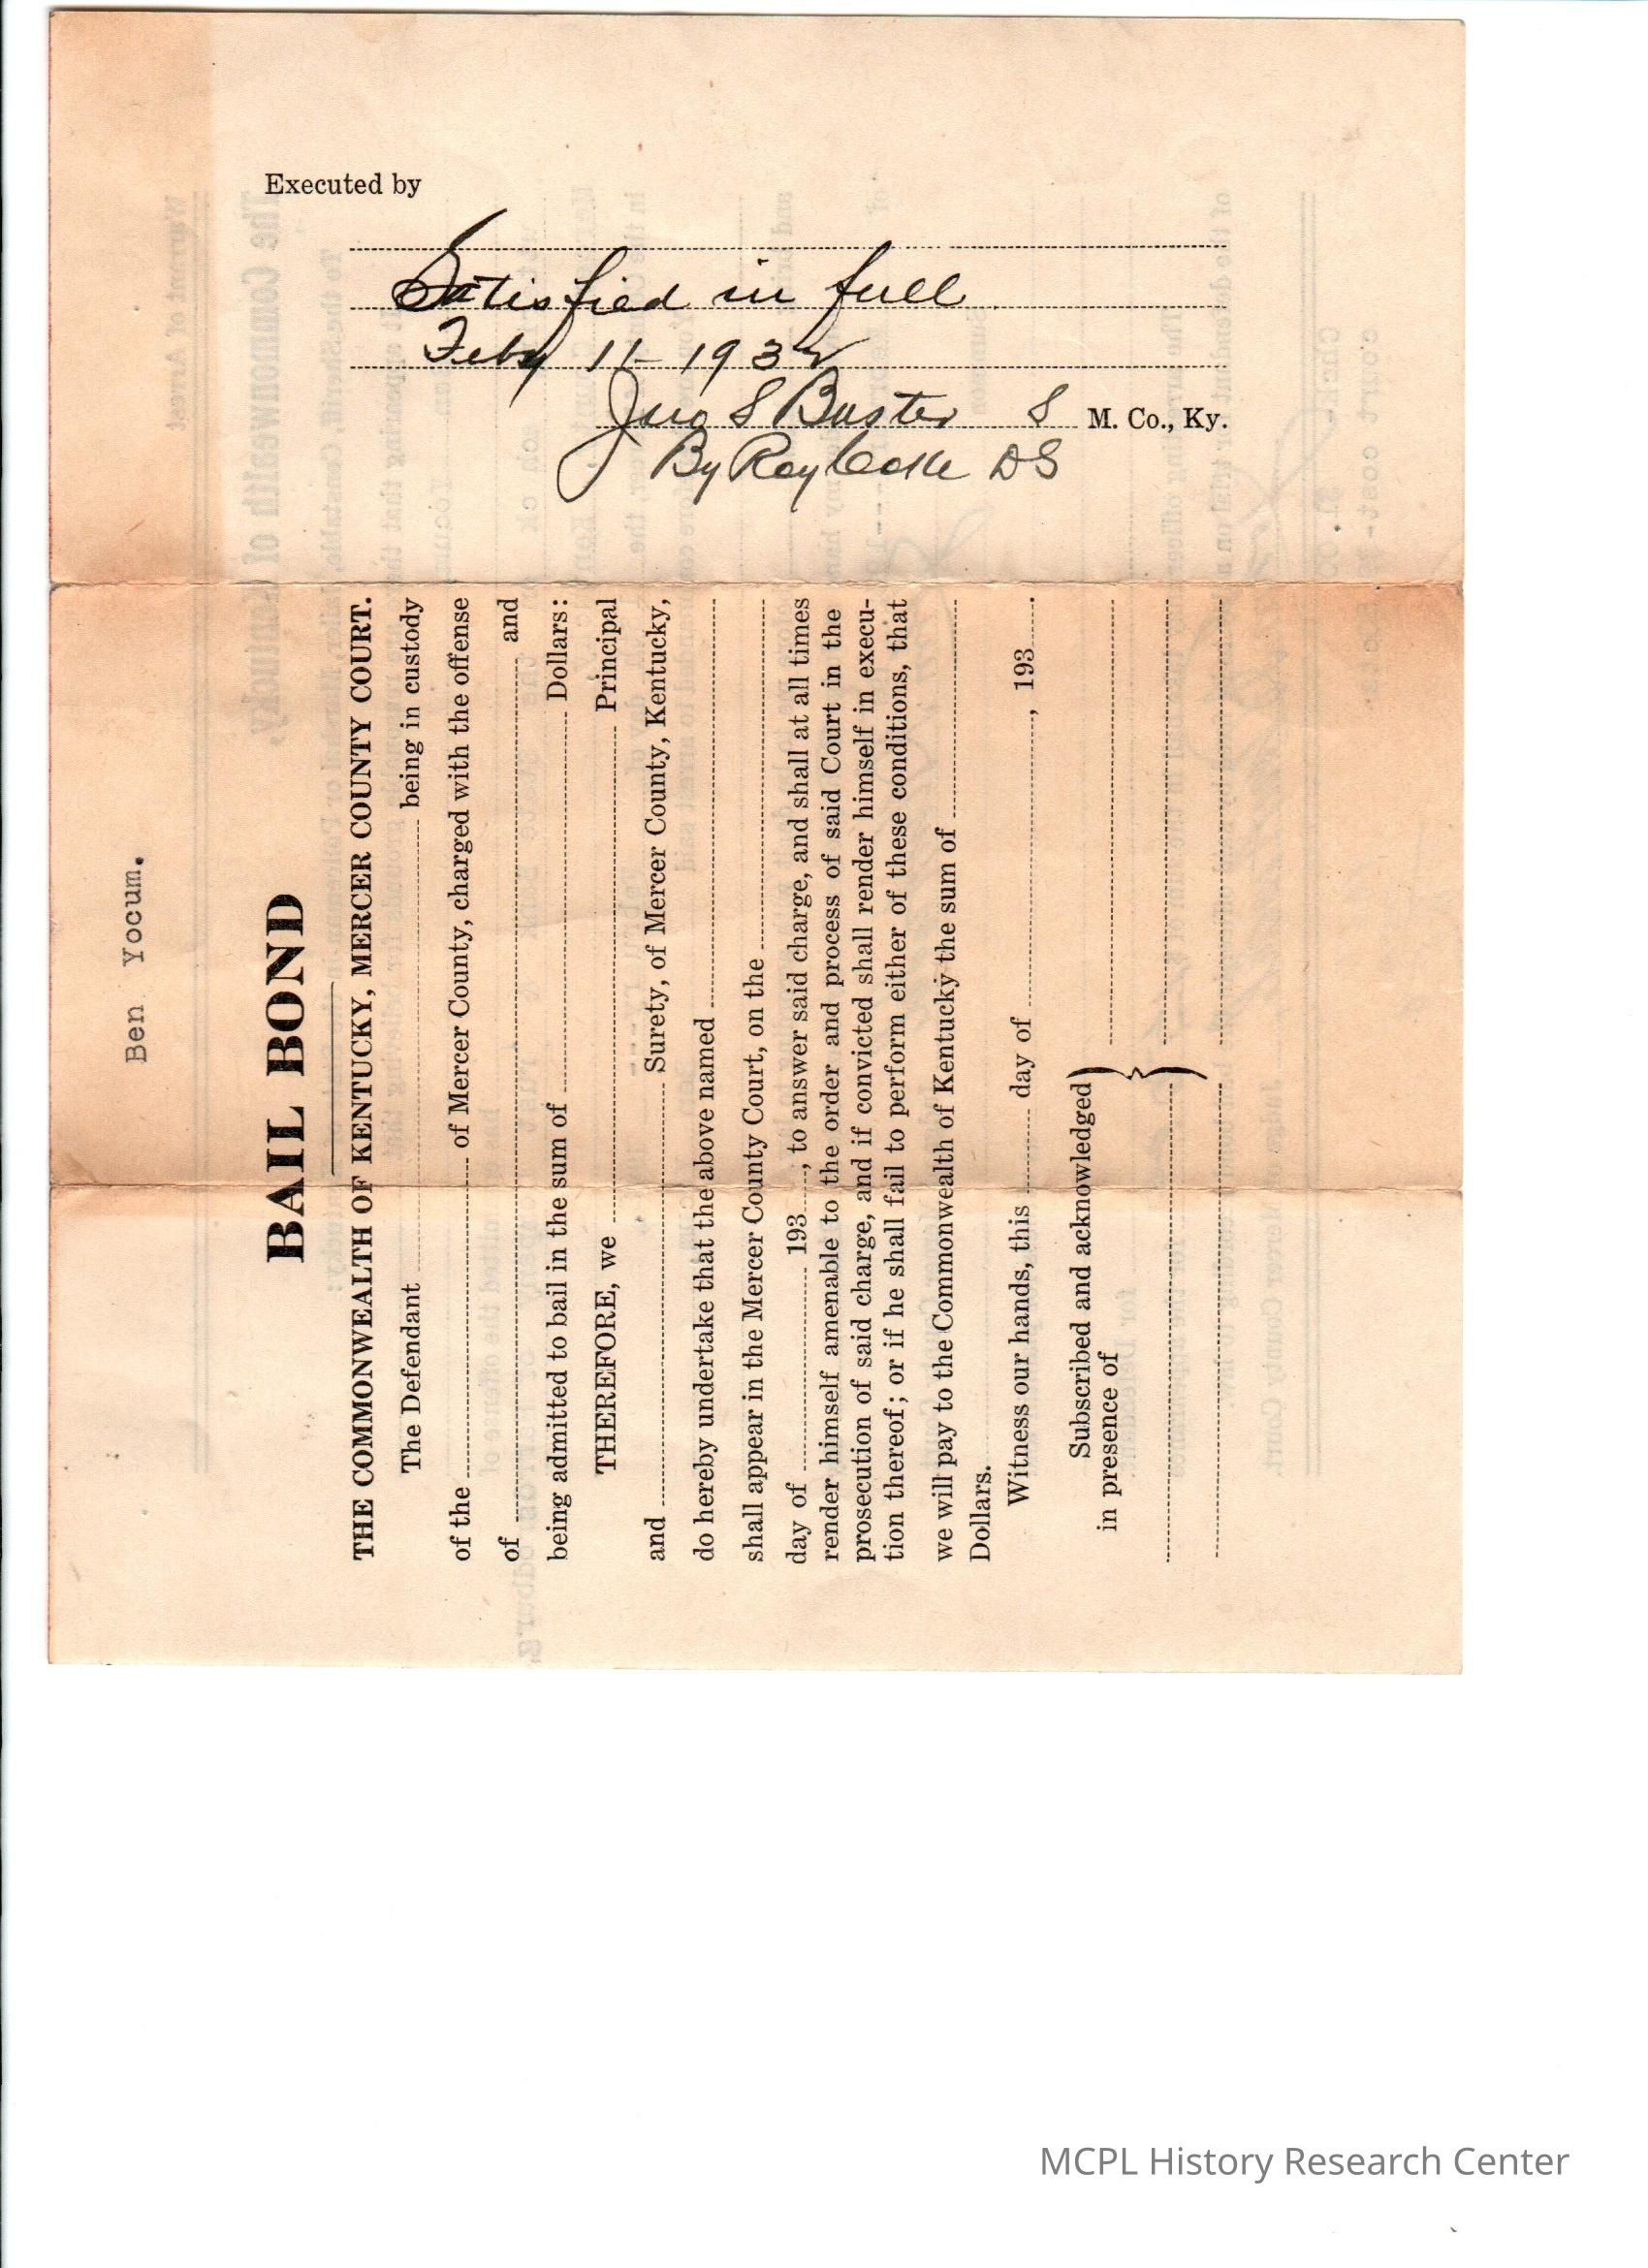 Executed by
Satisfied in full
Feby 11 - 1932
Jno S Buster S M. Co., Ky.
By Roy DS
Ben Yocum.
BAIL BOND
THE COMMONWEALTH OF KENTUCKY, MERCER COUNTY COURT.
The Defendant being in custody
of the of Mercer County, charged with the offense
of and
being admitted to bail in the sum of Dollars:
THEREFORE, we Principal
and Surety, of Mercer County, Kentucky,
do hereby undertake that the above named
shall appear in the Mercer County Court, on the
day of 193, to answer said charge, and shall at all times
render himself amenable to the order and process of said Court in the
prosecution of said charge, and if convicted shall render himself in execu-
tion thereof; or if he shall fail to perform either of these conditions, that
we will pay to the Commonwealth of Kentucky the sum of
Dollars.
Witness our hands, this day of , 193.
Subscribed and acknowledged
in presence of
MCPL History Research Center